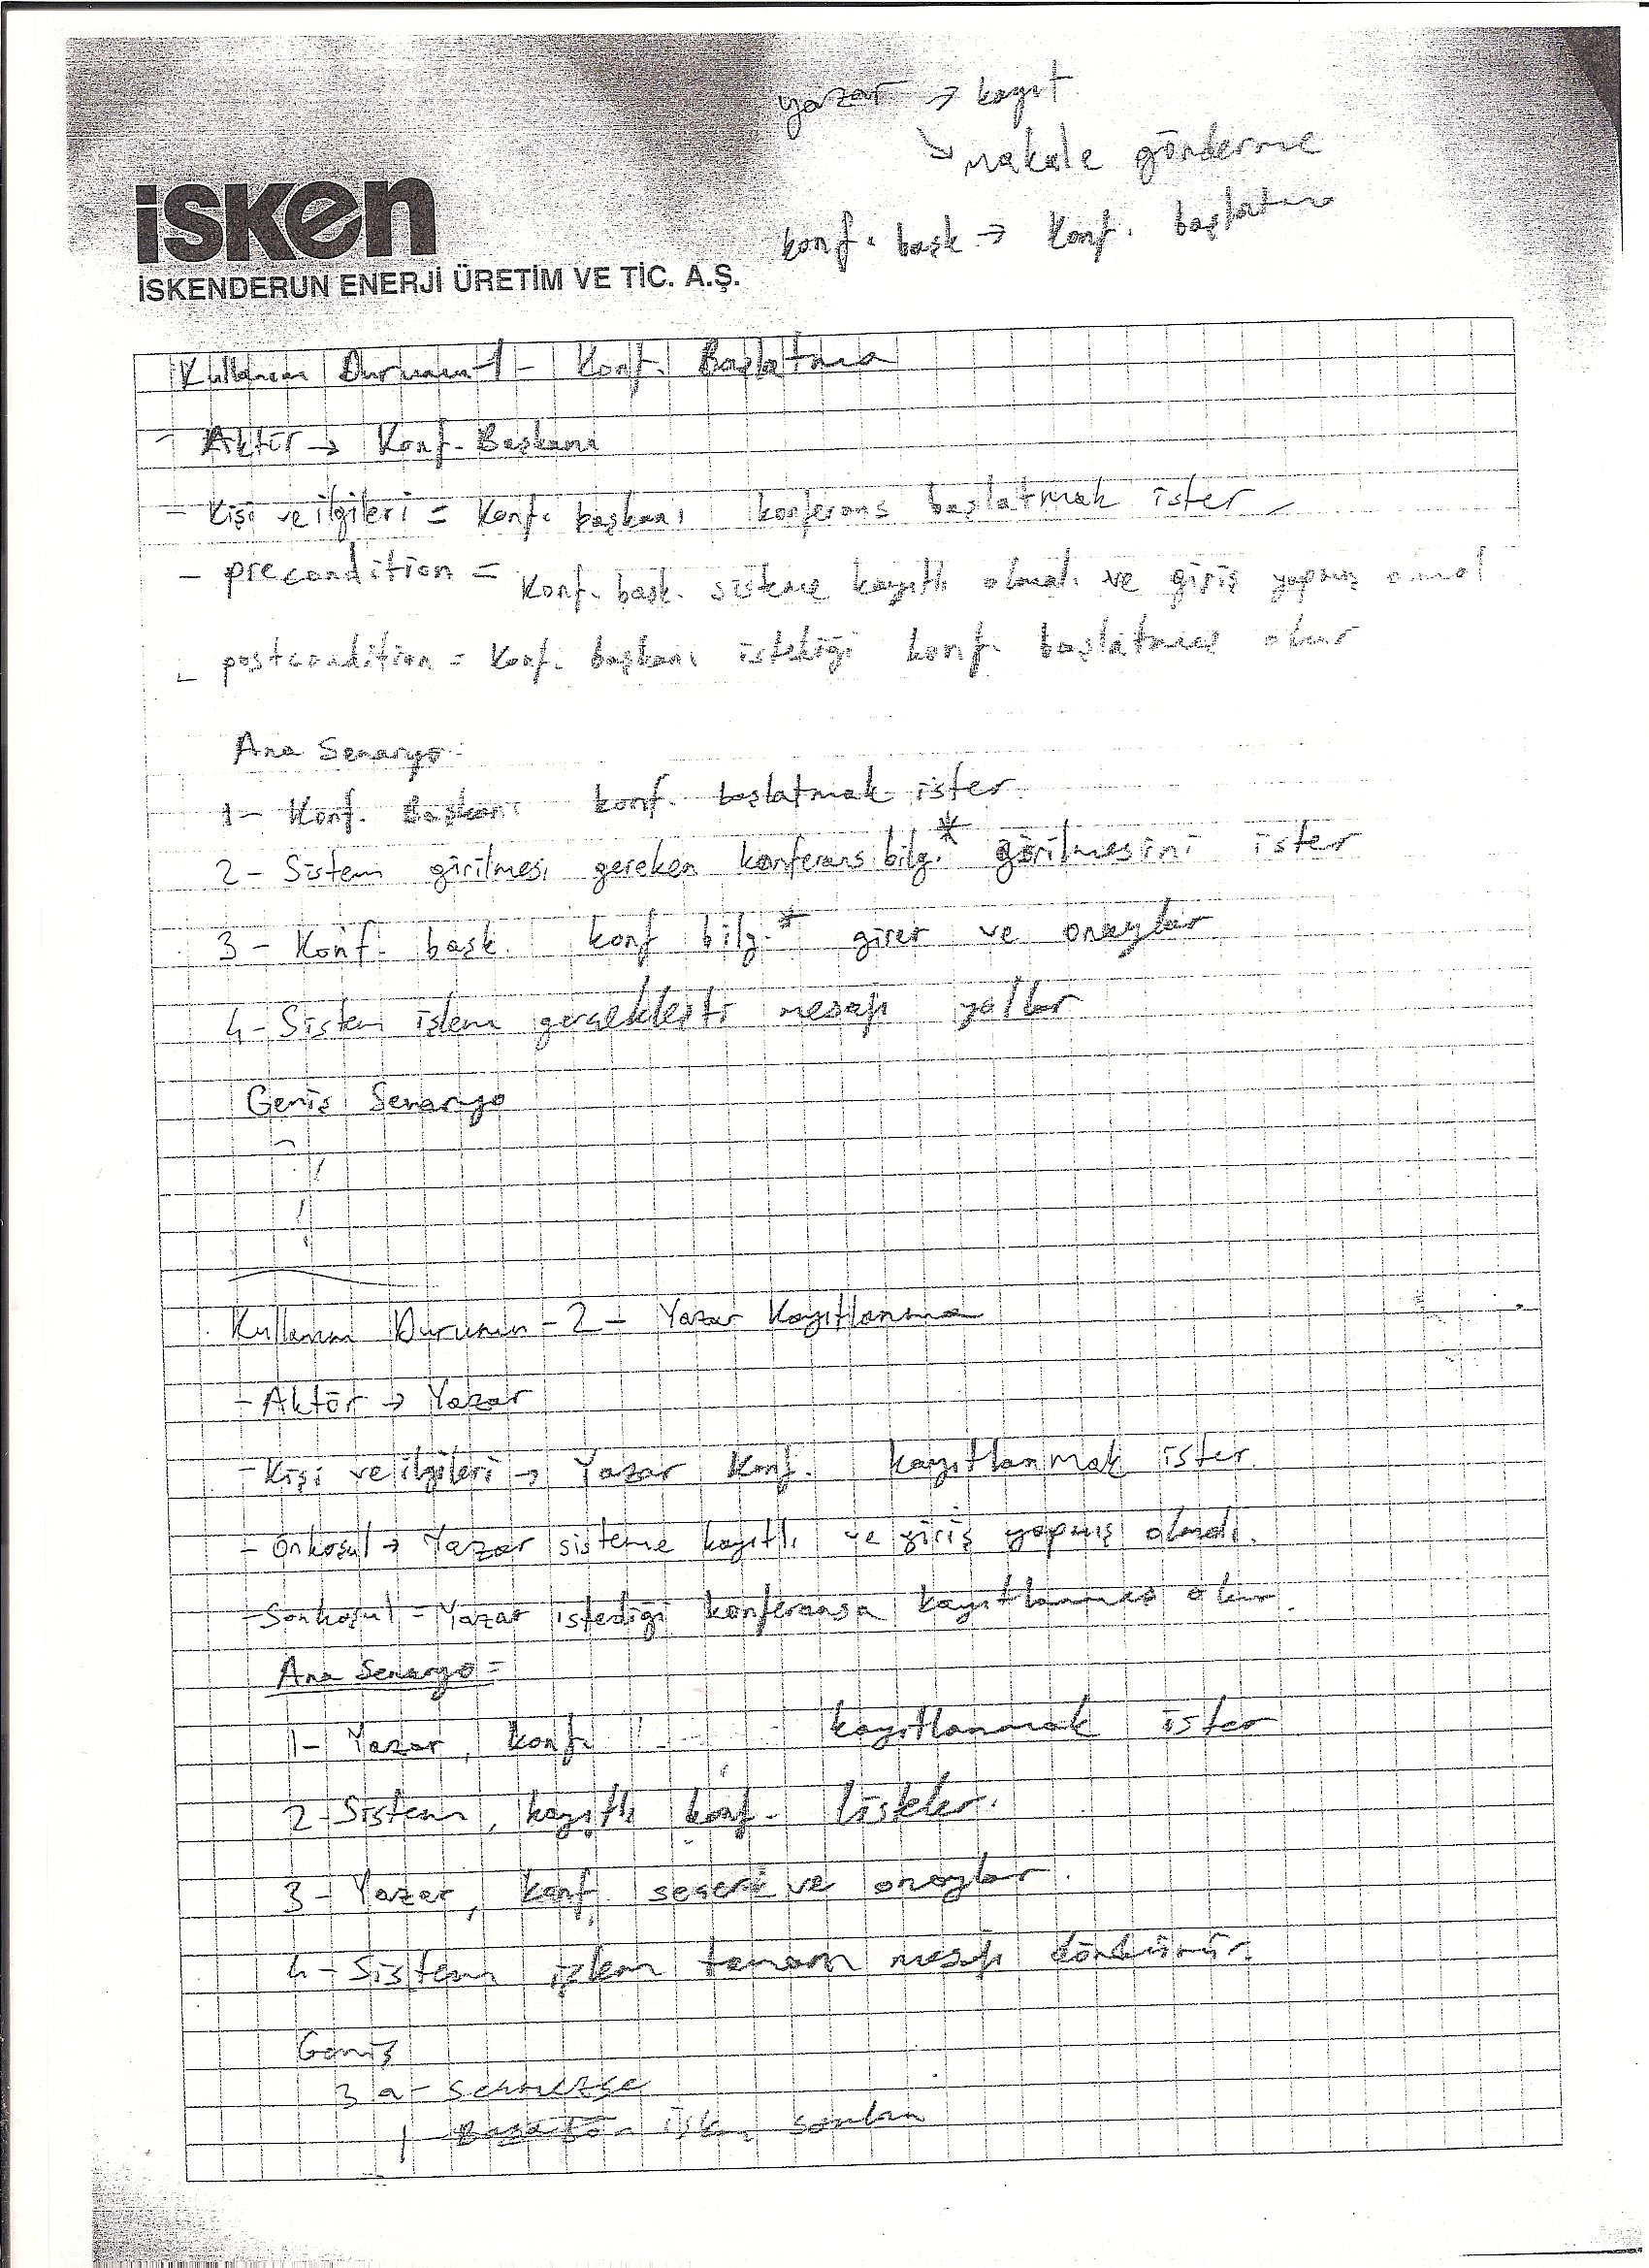 yazar → kayıt
↘ makale gönderme
konf. başk → konf. başlatma
isken
İSKENDERUN ENERJİ ÜRETİM VE TİC. A.Ş.
Kullanım Durumu-1- Konf. Başlatma
- Aktör → Konf. Başkanı
- Kişi ve ilgileri = Konf. başkanı konferans başlatmak ister
- precondition = Konf. başk. sisteme kayıtlı olmalı ve giriş yapmış olmal
- postcondition = Konf. başkanı istediği konf. başlatmış olur
Ana Senaryo
1- Konf. Başkanı konf. başlatmak ister.
2- Sistem girilmesi gereken konferans bilg.* girilmesini ister
3- Konf. başk. konf bilg.* girer ve onaylar
4- Sistem işlem gerçekleşti mesajı yollar
Geniş Senaryo
Kullanım Durumu-2- Yazar Kayıtlanma
- Aktör → Yazar
- Kişi ve ilgileri → Yazar Konf. kayıtlanmak ister.
- Önkoşul → Yazar sisteme kayıtlı ve giriş yapmış olmalı.
- Sonkoşul = Yazar istediği konferansa kayıtlanmış olur.
Ana Senaryo =
1- Yazar, konf. kayıtlanmak ister
2- Sistem, kayıtlı konf. listeler.
3- Yazar, konf. seçer ve onaylar.
4- Sistem işlem tamam mesajı
Geniş
3a- seçmezse
1-